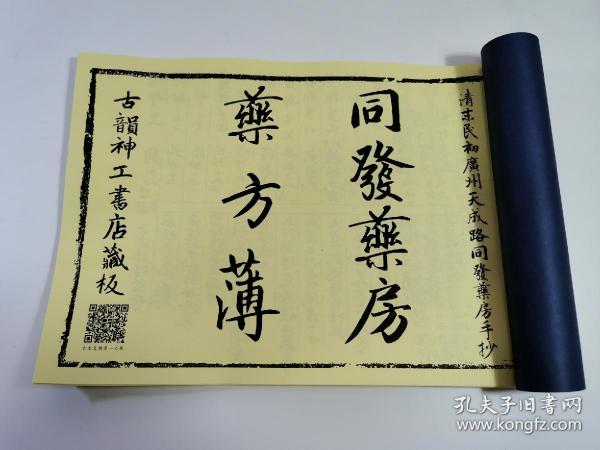 清末民初廣州天成路同發藥房手抄
同發藥房
藥方薄
古韻神工書店藏板
孔夫子旧書网
www.kongfz.com